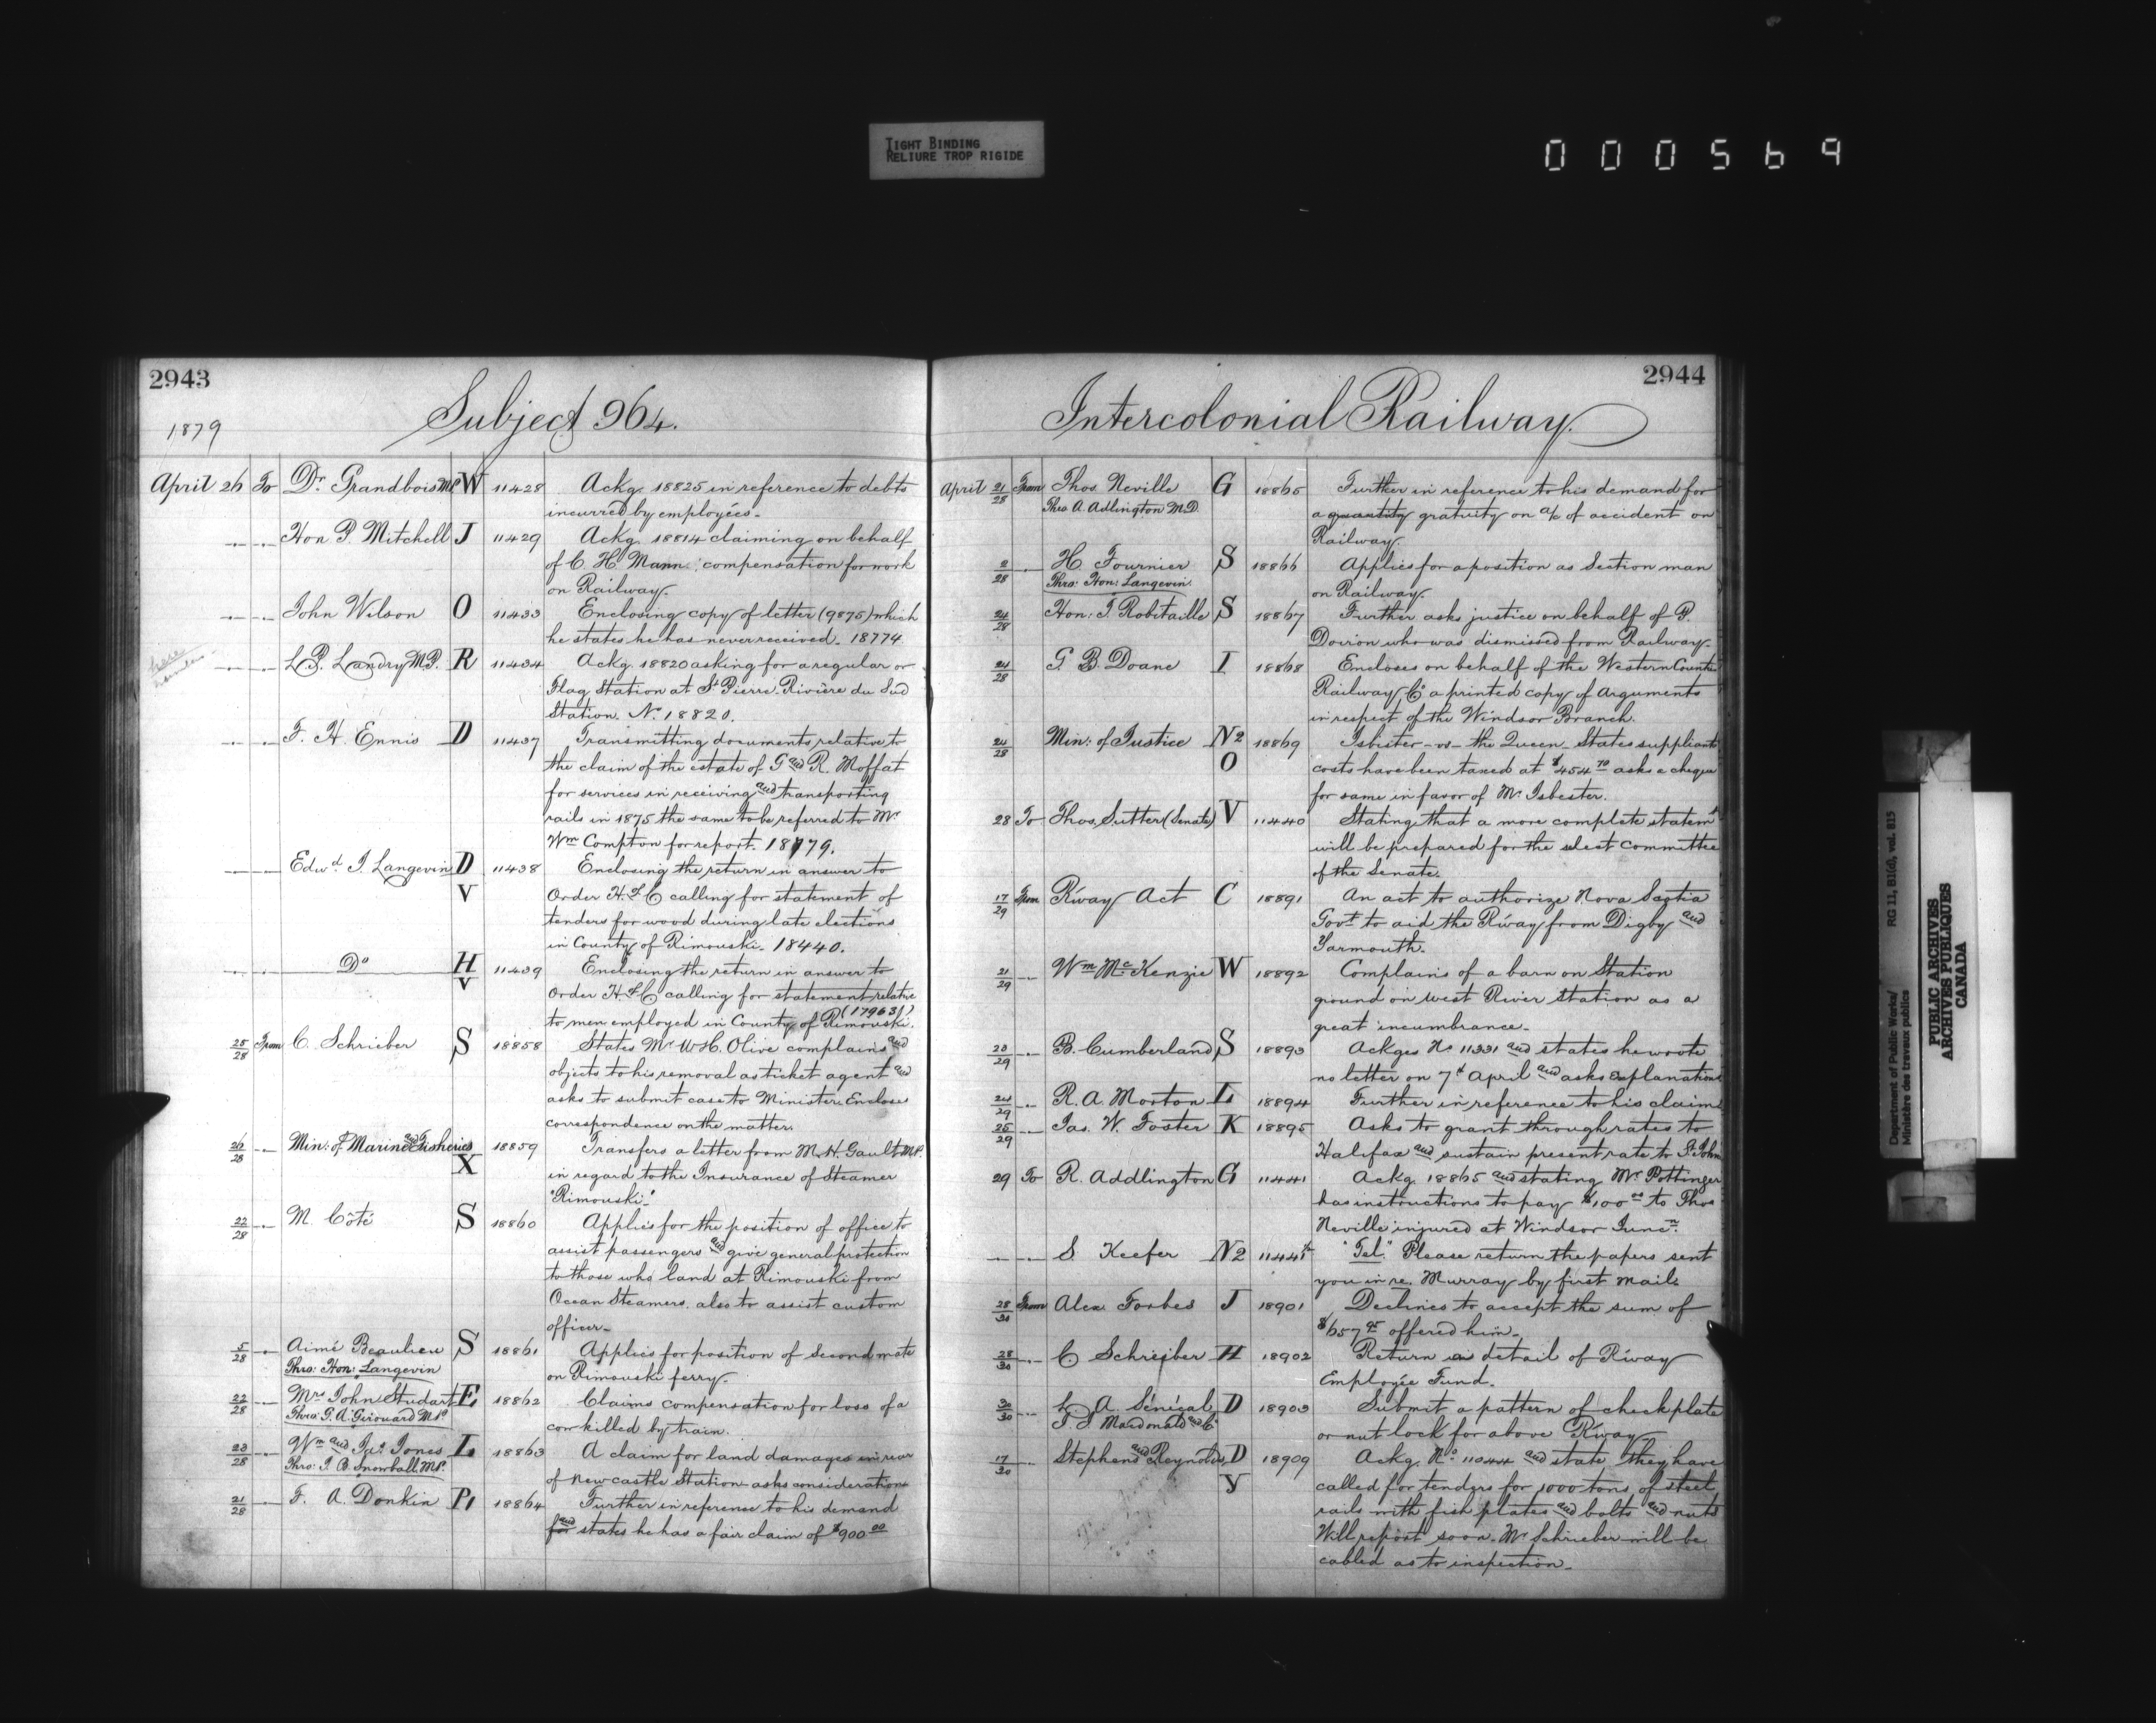 TIGHT BINDING
RELIURE TROP RIGIDE
000569
2943
Subject 964.
1879
April 26 To Dr. Grandbois MP W 11428 Ackg. 18825 in reference to debts
incurred by employées.
" " Hon P. Mitchell J 11429 Ackg. 18814 claiming on behalf
of C. H. Mann: compensation for work
on Railway.
" " John Wilson O 11433 Enclosing copy of letter (9875) which
he states he has never received. 18774
" " L. P. Landry M.P. R 11434 Ackg. 18820 asking for a regular or
Flag Station at St Pierre-Rivière du Sud
Station. No. 18820.
" " F. H. Ennis D 11437 Transmitting documents relative to
the claim of the estate of G and R. Moffat
for services in receiving and transporting
rails in 1875 the same to be referred to Mr
Wm Compton for report. 18779.
" " Edwd. J. Langevin D 11438 Enclosing the return in answer to
V Order H. of C calling for statement of
tenders for wood during late elections
in County of Rimouski. 18440.
" " Do H 11439 Enclosing the return in answer to
V Order H of C calling for statement relative
(17963)
to men employed in County of Rimouski.
25/28 From C. Schrieber S 18858 States Mr W.H. Olive complains and
objects to his removal as ticket agent and
asks to submit case to Minister. Encloses
correspondence on the matter.
26/28 " Min: of Marine and Fisheries X 18859 Transfers a letter from M.H. Gault M.P.
in regard to the Insurance of Steamer
"Rimouski."
22/28 " M. Côté S 18860 Applies for the position of office to
assist passengers and give general protection
to those who land at Rimouski from
Ocean Steamers. also to assist custom
officer.
5/28 " Aimé Beaulieu S 18861 Applies for position of second mate
Thro: Hon: Langevin on Rimouski ferry.
22/28 " Mrs John Studart E 18862 Claims compensation for loss of a
Thro: G. A. Girouard M.P. cow killed by train.
23/28 " Wm and Jas Jones L 18863 A claim for land damages in rear
Thro: J. B. Snowball M.P. of Newcastle Station asks consideration
21/28 " F. A. Donkin P1 18864 Further in reference to his demand
for and states he has a fair claim of $900 00
2944
Intercolonial Railway.
April 21/28 From Thos. Neville G 18865 Further in reference to his demand for
Thro A. Adlington M.D. a quantity gratuity on a/c of accident on
Railway.
2/28 " H. Fournier S 18866 Applies for a position as Section man
Thro: Hon: Langevin. on Railway.
24/28 Hon: T. Robitaille S 18867 Further asks justice on behalf of P.
Doiron who was dismissed from Railway.
24/28 G. B. Doane I 18868 Encloses on behalf of the Western Counties
Railway Co a printed copy of Arguments
in respect of the Windsor Branch.
24/28 Min: of Justice N2 18869 Isbester -vs- the Queen. States suppliants
O costs have been taxed at $454 70 asks a cheque
for same in favor of Mr. Isbester.
28 To Thos. Sutter (Senate) V 11440 Stating that a more complete statemt
will be prepared for the select Committee
of the Senate.
17/29 From R'way Act C 18891 An act to authorize Nova Scotia
Govt to aid the R'way from Digby and
Yarmouth.
21/29 " Wm McKenzie W 18892 Complains of a barn on Station
ground on West River Station as a
great incumbrance.
23/29 " B. Cumberland S 18893 Ackges No 11331 and states he wrote
no letter on 7th April and asks explanations
24/29 " R. A. Morton L 18894 Further in reference to his claim
25/29 " Jas. W. Foster K 18895 Asks to grant through rates to
Halifax and sustain present rate to St. John
29 To R. Addlington G 11441 Ackg. 18865 and stating Mr Pottinger
has instructions to pay $100 00 to Thos
Neville injured at Windsor Juncn.
" " S Keefer N2 11441½ "Tel." Please return the papers sent
you in re. Murray by first mail.
28/30 From Alex Forbes J 18901 Declines to accept the sum of
$657 95 offered him.
28/30 " C. Schreiber H 18902 Return in detail of R'way
Employée Fund.
30/30 " L. A. Sénécal D 18903 Submit a pattern of check plate
J. J. Macdonald and Co or nut lock for above R'way
17/30 Stephens and Reynolds D 18909 Ackg. No. 11044 and state they have
Y called for tenders for 1000 tons of steel
rails with fish plates and bolts and nuts
Will report soon. Mr Schrieber will be
cabled as to inspection.
Department of Public Works/ RG 11, B1(d), vol. 815
Ministère des travaux publics
PUBLIC ARCHIVES
ARCHIVES PUBLIQUES
CANADA